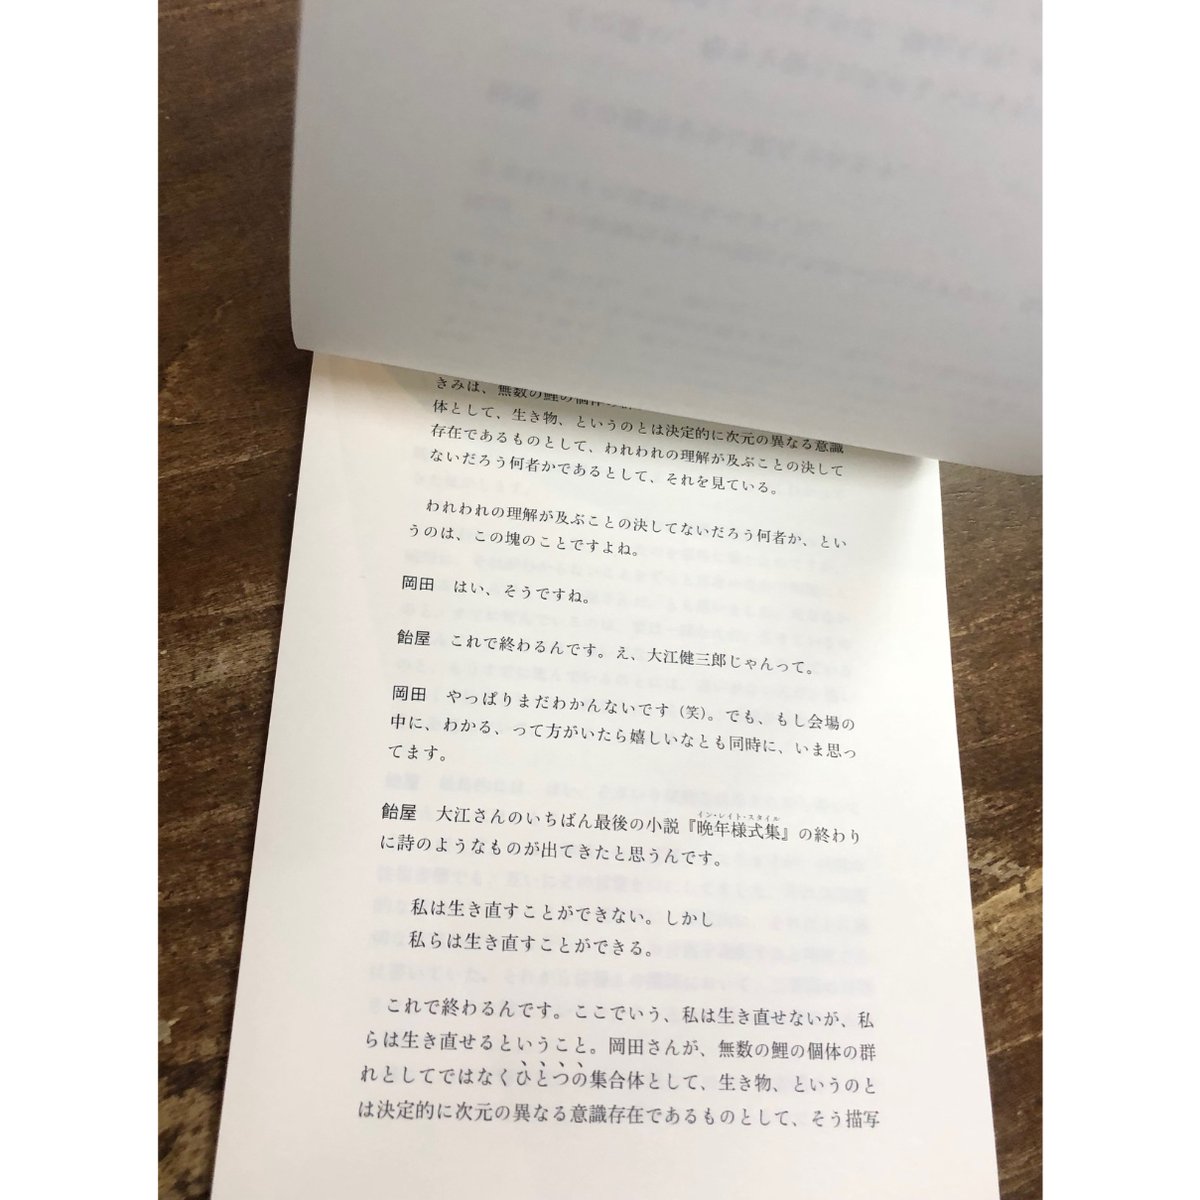 きみは、無数の鯉の個体の群
体として、生き物、というのとは決定的に次元の異なる意識
存在であるものとして、われわれの理解が及ぶことの決して
ないだろう何者かであるとして、それを見ている。
われわれの理解が及ぶことの決してないだろう何者か、とい
うのは、この塊のことですよね。
岡田　はい、そうですね。
飴屋　これで終わるんです。え、大江健三郎じゃんって。
岡田　やっぱりまだわかんないです（笑）。でも、もし会場の
中に、わかる、って方がいたら嬉しいなとも同時に、いま思っ
てます。
イン・レイト・スタイル
飴屋　大江さんのいちばん最後の小説『晩年様式集』の終わり
に詩のようなものが出てきたと思うんです。
私は生き直すことができない。しかし
私らは生き直すことができる。
これで終わるんです。ここでいう、私は生き直せないが、私
らは生き直せるということ。岡田さんが、無数の鯉の個体の群
れとしてではなくひとつの集合体として、生き物、というのと
は決定的に次元の異なる意識存在であるものとして、そう描写